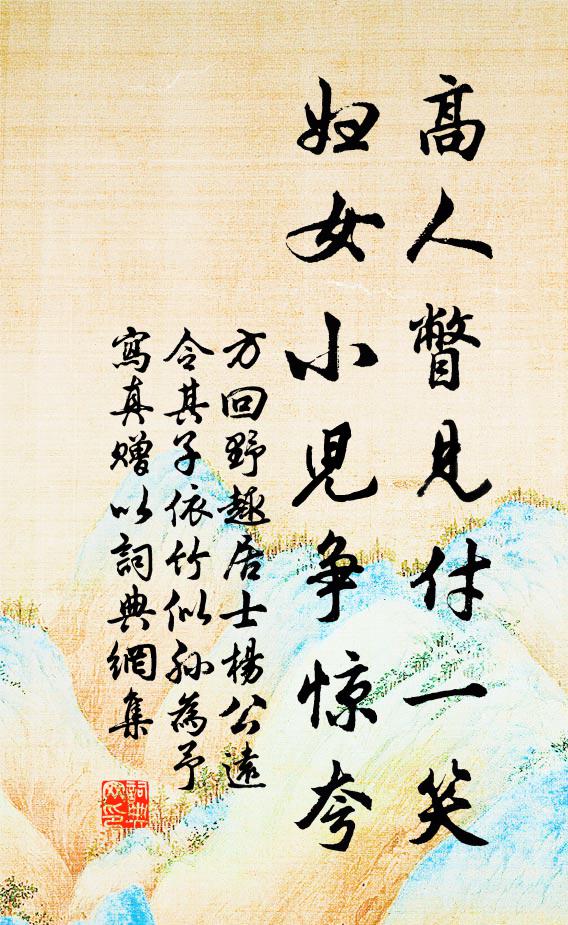 高人瞥見付一笑
婦女小児争惊夸
方回野趣居士楊公遠
令其子依竹似孫為予
寫真贈以詞典網集